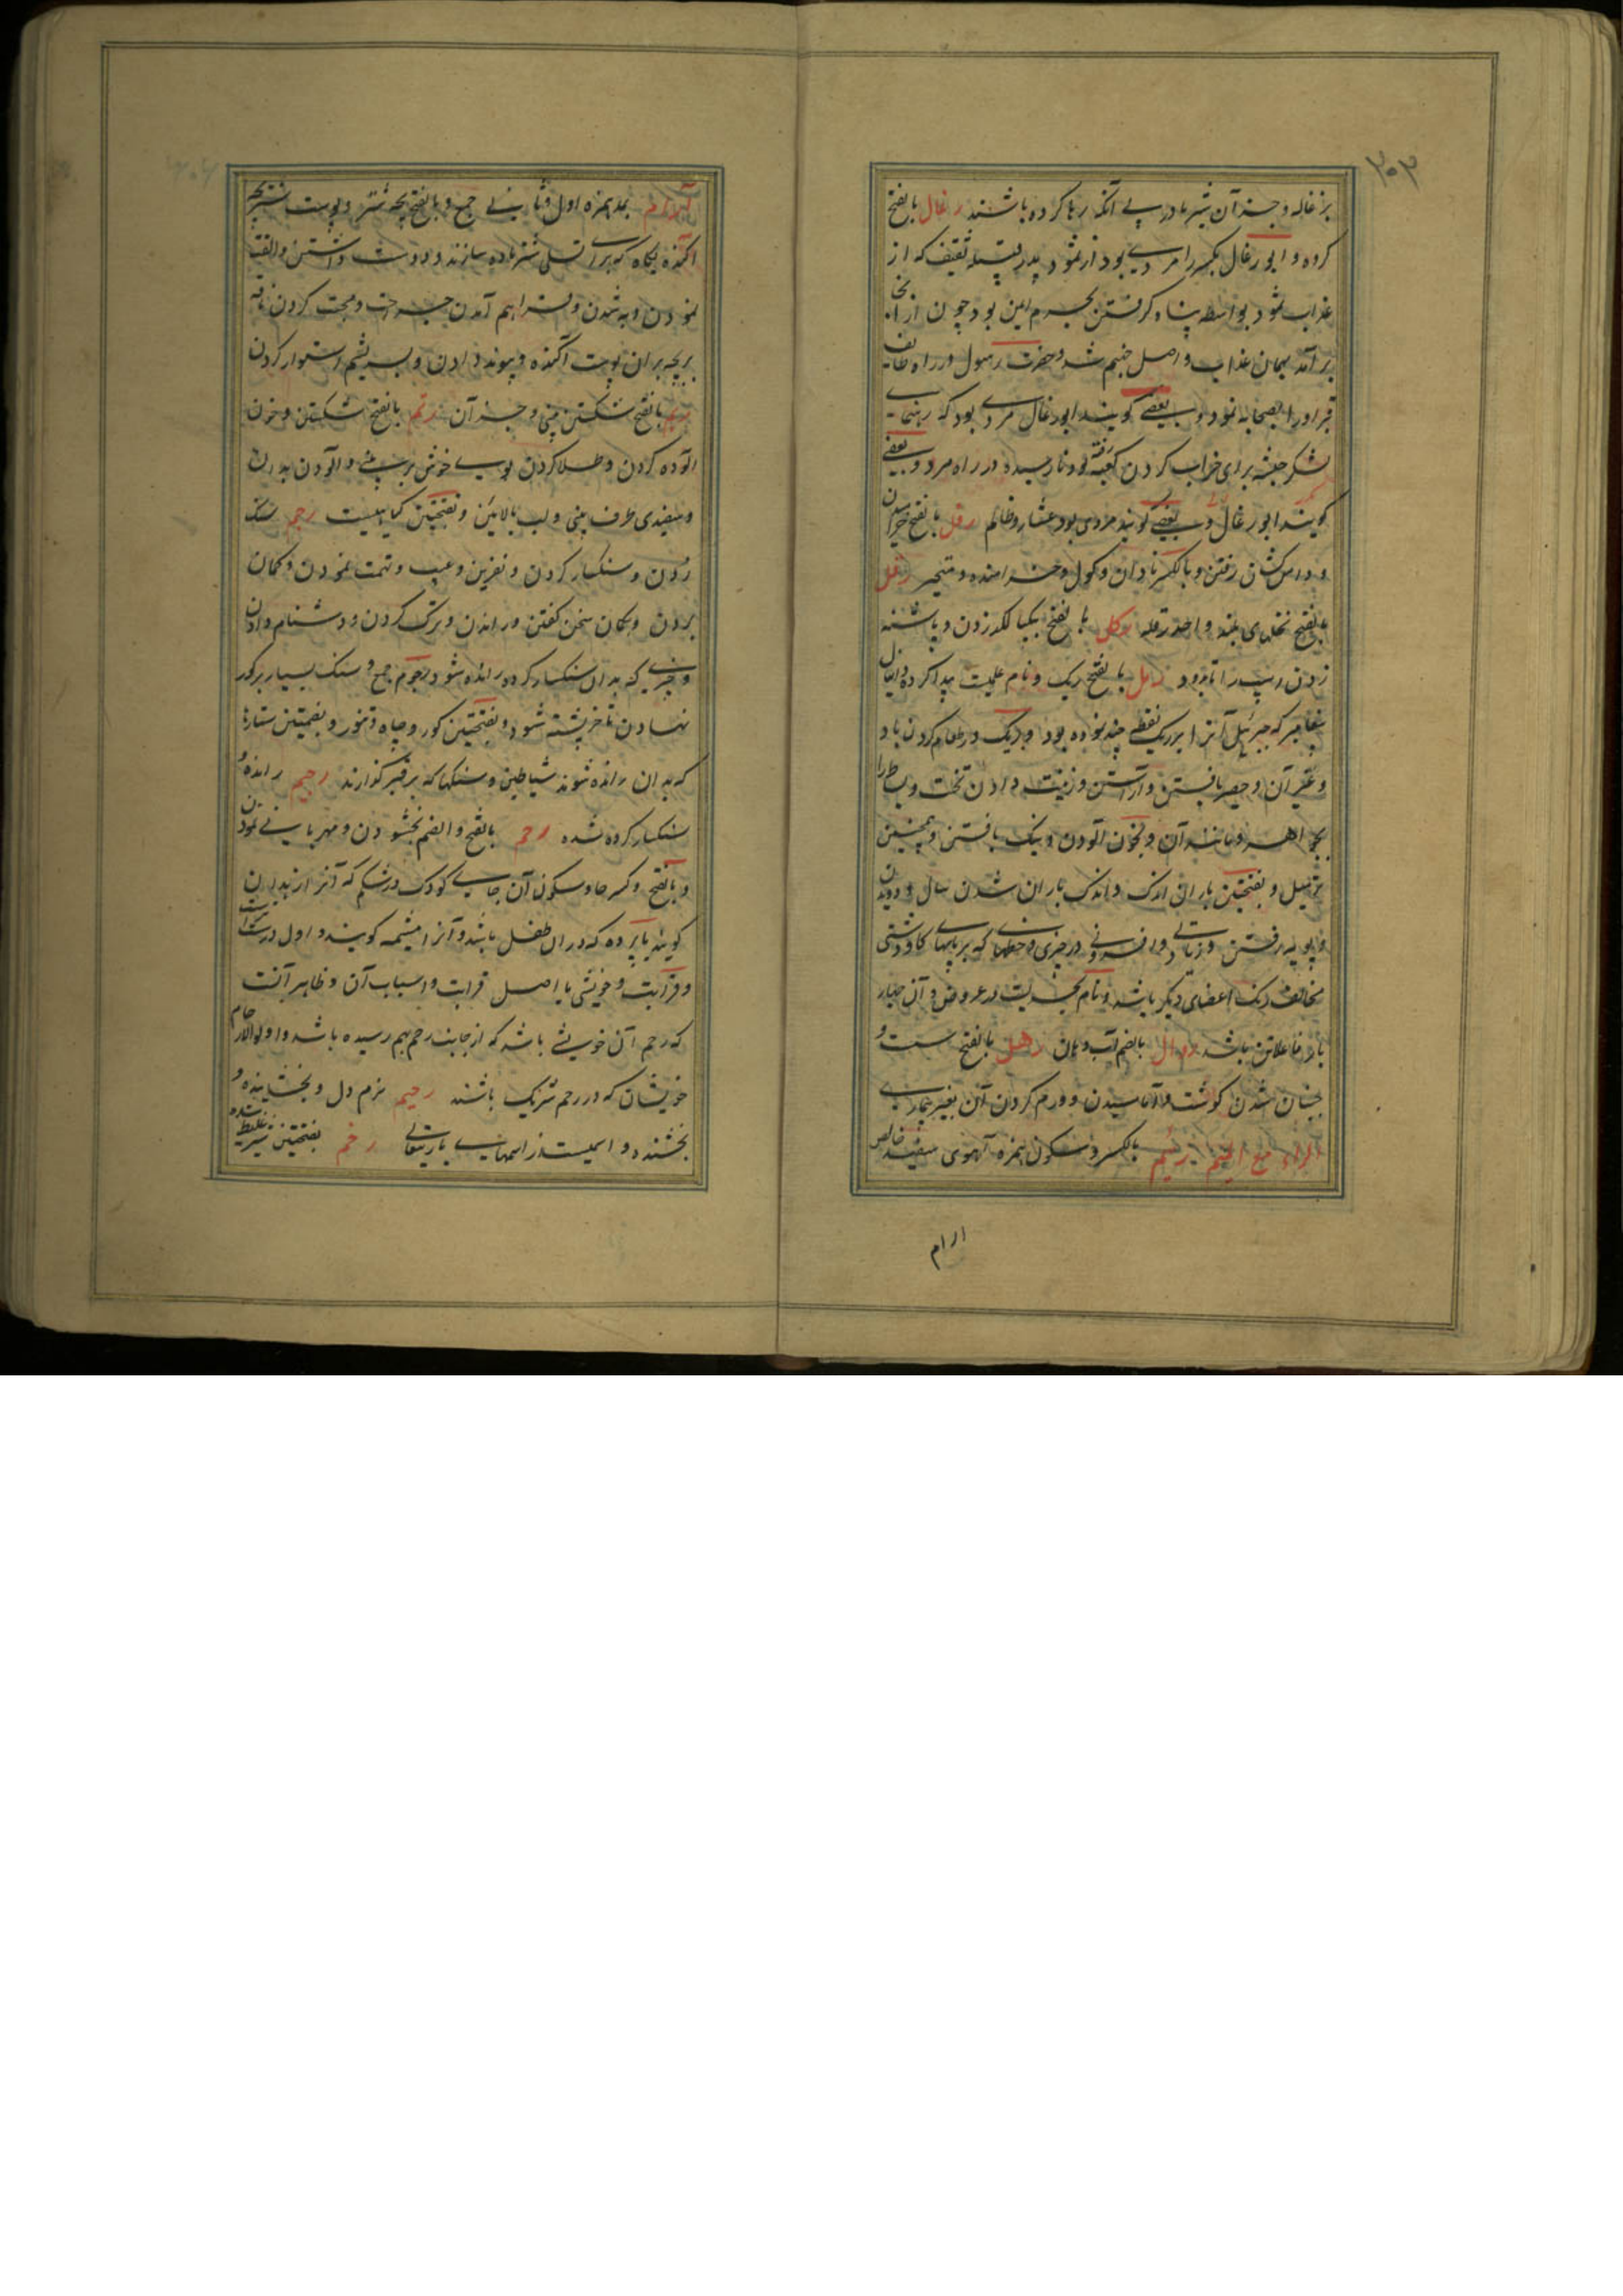 ۳۰۳
بزغاله و جز آن شیر مادر بی آنکه رها کرده باشند رغال بالفتح
کروه و ابو رغال بکسر را مردی بود از ثمود پدر قبیله ثقیف که از
عذاب ثمود بواسطه پناه کرفتن بحرم ایمن بود چون از انجا
برآمد بهمان عذاب واصل جهنم شد و حضرت رسول در راه طایف
قبر او را بصحابه نمود و بعضی کویند ابو رغال مردی بود که رهنمای
لشکر حبشه برای خراب کردن کعبه رفته بود نارسیده در راه مرد و بعضی
کویند ابو رغال و بعضی کویند مردی بود عشار و ظالم رفل بالفتح خرامیدن
و دامن کشان رفتن و بالکسر نادان و کول و خرامنده و متبختر رقل
بالفتح نخلهای بلند واحد رقله رکل بالفتح بیکپا لکد زدن و پاشنه
زدن اسپ را تا برود رمل بالفتح ریک و نام علمیست پیدا کرده دانیال
پیغامبر که جبرئیل آنرا بر ریک نقطه چند نموده بود و ریک در طعام کردن باد
و غیر آن و حصیر بافتن و آراستن و زینت دادن تخت و بساط را
بجواهر و مانند آن و بخون آلودن و نیک بافتن و همچنین
ترمیل و بفتحتین باران اندک و اندک باران شدن سال و دویدن
و پویه رفتن و زیادتی و افزونی در چیزی و خطها که بر پایهای کاو دشتی
مخالف رنک اعضای دیکر باشد و نام بحریست در عروض و آن چهار
بار فاعلاتن باشد روال بالضم آب دهان رهل بالفتح سست و
جنبان شدن کوشت و آماسیدن و ورم کردن آن بغیر بیماری
الراء مع المیم رئم بالکسر و سکون همزه آهوی سفید خالص
ارام
آرام بمد همزه اول و ثانی جمع و بالفتح بچه شتر و پوست شتر بچه
آکنده بکاه که برای تسلی شتر ماده سازند و دوست داشتن و الفت
نمودن و به شدن و فراهم آمدن جراحت و محبت کردن ناقه
بر بچه بر ان پوست آکنده و پیوند دادن و بسریشم استوار کردن
رتم بالفتح شکستن بینی و جز آن رثم بالفتح شکستن و خون
آلوده کردن و طلا کردن بوی خوش بر بینی و آلودن بدان
و سفیدی طرف بینی و لب بالایین و بفتحتین کیاهیست رجم سنک
زدن و سنکسار کردن و نفرین و عیب و تهمت نمودن و کمان
بردن و بکمان سخن کفتن و راندن و ترک کردن و دشنام دادن
و چیزی که بدان سنکسار کرده رانده شود رجوم جمع و سنک بسیار بر کور
نهادن تا خرپشته شود و بفتحتین کور و چاه و تنور و بضمتین ستارها
که بدان رانده شوند شیاطین و سنکها که بر قبر کذارند رجیم رانده و
سنکسار کرده شده رحم بالفتح و الضم بخشودن و مهربانی نمودن
و بالفتح و کسر حا و سکون آن جای کودک در شکم که آنرا زهدان
کویند یا پرده که دران طفل باشد و آنرا مشیمه کویند و اول درست است
و قرابت و خویشی یا اصل قرابت و اسباب آن و ظاهر آنست
که رحم آن خویشی باشد که از جانب رحم بهم رسیده باشد و اولو الارحام
خویشان که در رحم شریک باشند رحیم نرم دل و بخشاینده و
بخشنده و اسمیست از اسمهای باریتعالی رخم بفتحتین شیر غلیظ شده